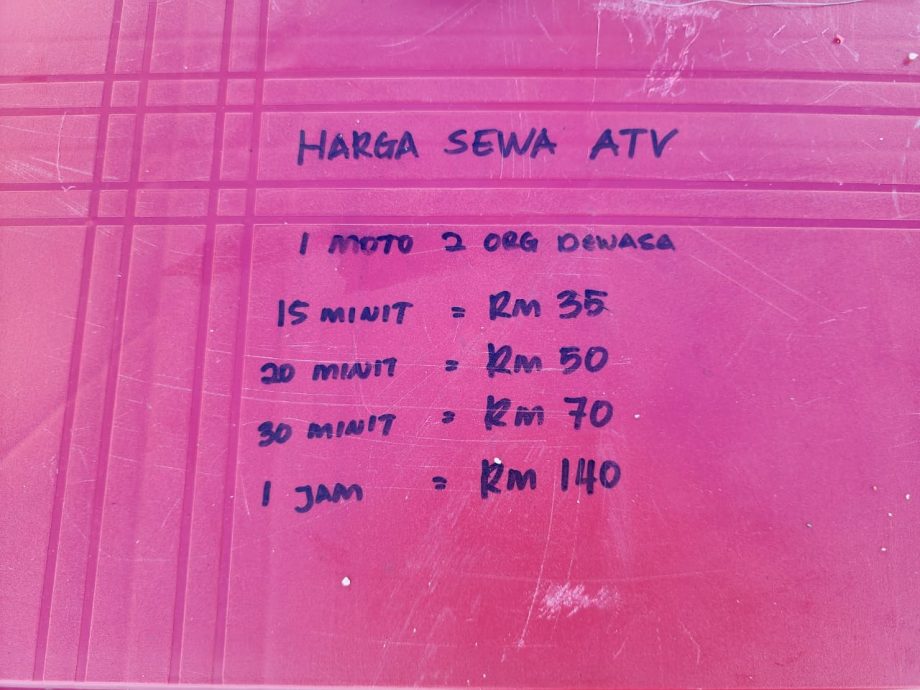 HARGA SEWA ATV
1 MOTO 2 ORG DEWASA
15 MINIT = RM 35
20 MINIT = RM 50
30 MINIT = RM 70
1 JAM = RM 140